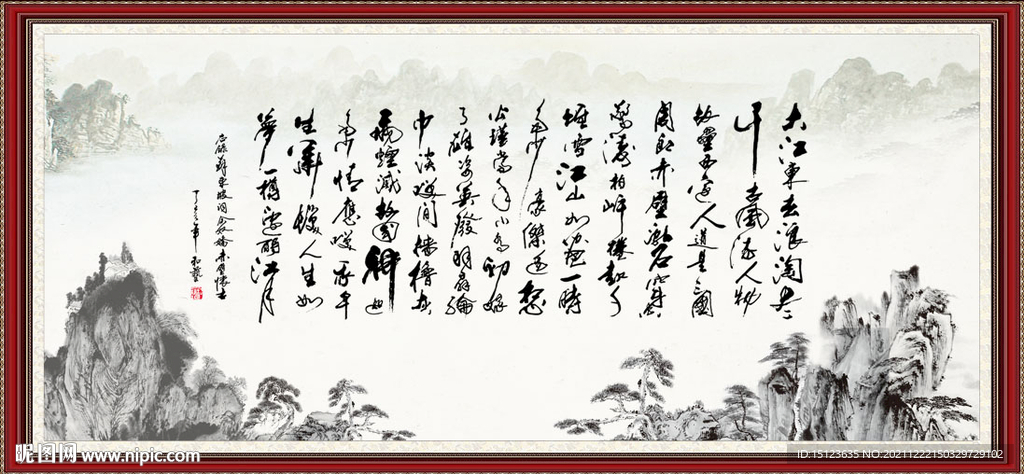 大江東去浪淘盡
千古風流人物
故壘西邊人道是三國
周郎赤壁亂石穿空
驚濤拍岸捲起千
堆雪江山如畫一時
多少豪傑遥想
公瑾當年小喬初嫁
了雄姿英發羽扇綸
巾談笑間檣櫓灰
飛煙滅故國神遊
多情應笑我早
生華髮人生如
夢一樽還酹江月
蘇東坡詞念奴嬌赤壁懷古
昵图网 www.nipic.com
ID:15123635 NO:20211222150329729102